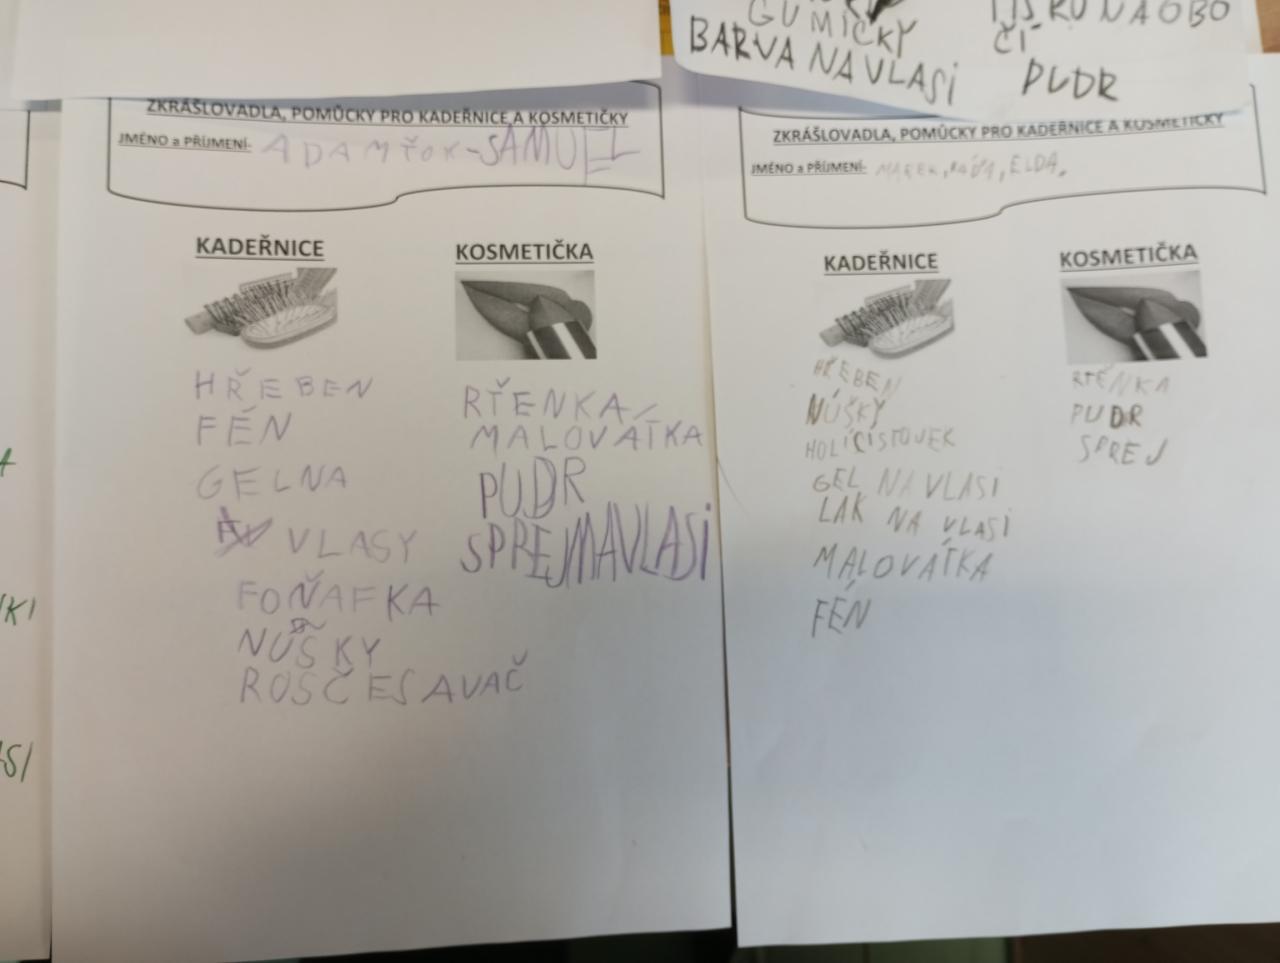 GUMIČKY
BARVA NA VLASI
NA OBO
ČÍ
PUDR
ZKRÁŠLOVADLA, POMŮCKY PRO KADEŘNICE A KOSMETIČKY
JMÉNO a PŘÍJMENÍ-
SAMUEL
KADEŘNICE
KOSMETIČKA
HŘEBEN
FÉN
GELNA
VLASY
FOŇAFKA
NŮŠKY
ROSČESAVAČ
RŤENKA
MALOVATKA
PUDR
SPREJNAVLASI
ZKRÁŠLOVADLA, POMŮCKY PRO KADEŘNICE A KOSMETIČKY
JMÉNO a PŘÍJMENÍ-
MAREK, ELDA.
KADEŘNICE
KOSMETIČKA
HŘEBEN
NÚŠKY
HOLÍCISTOJEK
GEL NA VLASI
LAK NA VLASI
MALOVÁTKA
FÉN
RTĚNKA
PUDR
SPREJ